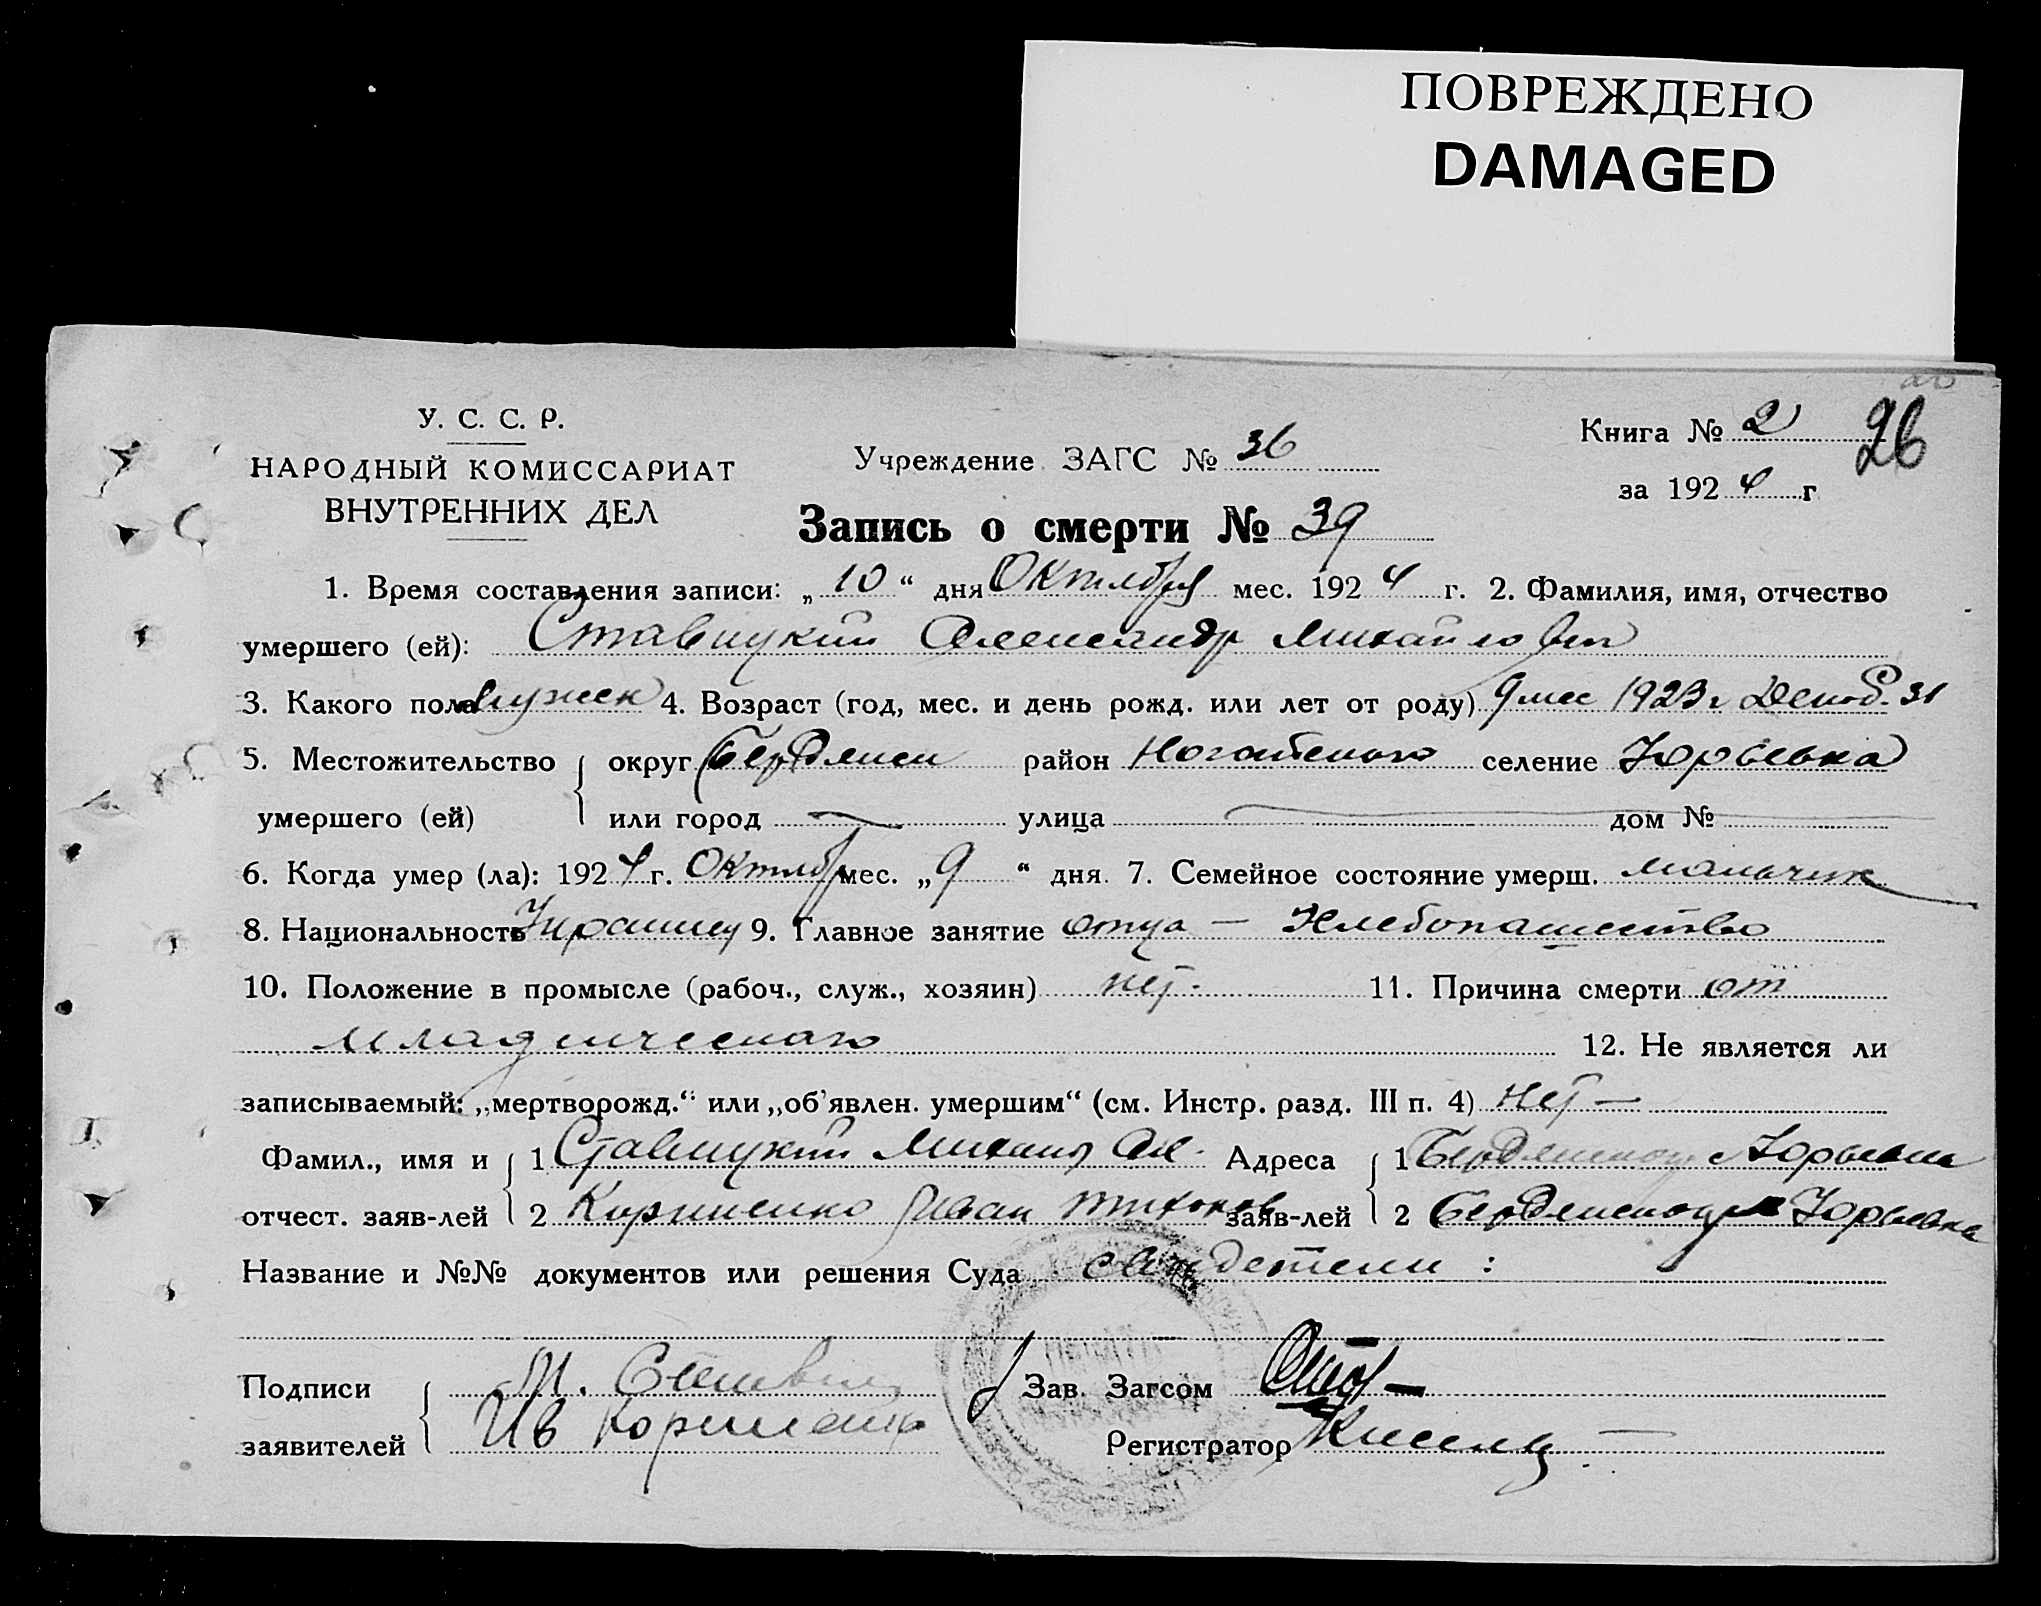 ПОВРЕЖДЕНО
DAMAGED
У. С. С. Р.
НАРОДНЫЙ КОМИССАРИАТ
ВНУТРЕННИХ ДЕЛ
Учреждение ЗАГС № 36
Книга № 2 26
за 1924 г
Запись о смерти № 39
1. Время составления записи: „10“ дня Октября мес. 1924 г. 2. Фамилия, имя, отчество
умершего (ей): Ставицкий Александр Михайлович
3. Какого пола мужск 4. Возраст (год, мес. и день рожд. или лет от роду) 9 мес 1923 г Декаб. 31
5. Местожительство округ Бердянск район Ногайского селение Юрьевка
умершего (ей) или город — улица — дом № —
6. Когда умер (ла): 1924 г. Октябр мес. „9“ дня. 7. Семейное состояние умерш. мальчик
8. Национальность Украинец 9. Главное занятие отца — Хлебопашество
10. Положение в промысле (рабоч., служ., хозяин) нет. 11. Причина смерти от
младенческаго 12. Не является ли
записываемый: „мертворожд.“ или „об’явлен. умершим“ (см. Инстр. разд. III п. 4) нет —
Фамил., имя и 1 Ставицкий Михаил Адреса 1 Юрьевка
отчест. заяв-лей 2 Корниенко Иван Тихонов заяв-лей 2 Юрьевка
Название и №№ документов или решения Суда свидетели :
Подписи М. Зав. Загсом
заявителей Ив Корниенко Регистратор